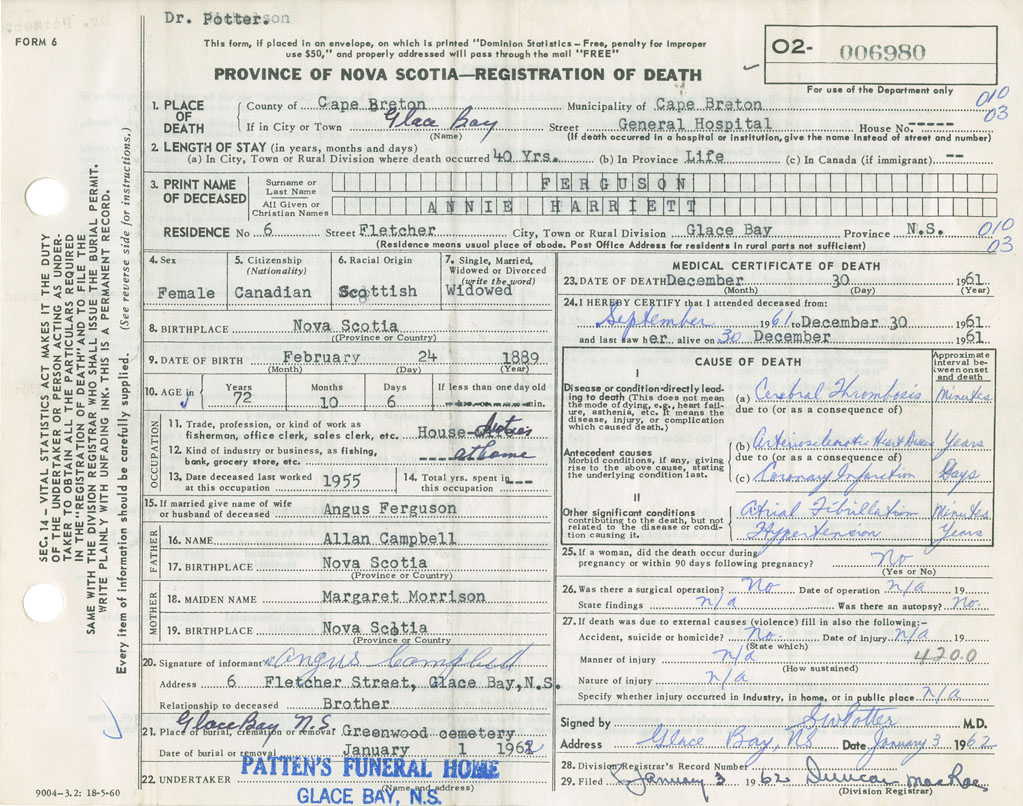 Dr. Potter.
FORM 6
This form, if placed in an envelope, on which is printed "Dominion Statistics – Free, penalty for improper
use $50," and properly addressed will pass through the mail "FREE"
02- 006980
For use of the Department only
PROVINCE OF NOVA SCOTIA—REGISTRATION OF DEATH
010
03
1. PLACE OF DEATH
County of Cape Breton Municipality of Cape Breton
If in City or Town Glace Bay Street General Hospital House No. -----
(Name) (If death occurred in a hospital or institution, give the name instead of street and number)
2. LENGTH OF STAY (in years, months and days)
(a) In City, Town or Rural Division where death occurred 40 Yrs. (b) In Province Life (c) In Canada (if immigrant) --
3. PRINT NAME OF DECEASED
Surname or Last Name FERGUSON
All Given or Christian Names ANNIE HARRIETT
RESIDENCE No 6 Street Fletcher City, Town or Rural Division Glace Bay Province N.S. 010
03
(Residence means usual place of abode. Post Office Address for residents in rural parts not sufficient)
4. Sex
Female
5. Citizenship (Nationality)
Canadian
6. Racial Origin
Scottish
7. Single, Married, Widowed or Divorced (write the word)
Widowed
8. BIRTHPLACE Nova Scotia
((Province or Country)
9. DATE OF BIRTH February 24 1889
(Month) (Day) (Year)
10. AGE in Years Months Days If less than one day old
72 10 6 min.
OCCUPATION
11. Trade, profession, or kind of work as
fisherman, office clerk, sales clerk, etc. House- duties
12. Kind of industry or business, as fishing,
bank, grocery store, etc. at home
13. Date deceased last worked at this occupation 1955
14. Total yrs. spent in this occupation ---
15. If married give name of wife
or husband of deceased Angus Ferguson
FATHER
16. NAME Allan Campbell
17. BIRTHPLACE Nova Scotia
(Province or Country)
MOTHER
18. MAIDEN NAME Margaret Morrison
19. BIRTHPLACE Nova Scotia
(Province or Country
20. Signature of informant Angus Campbell
Address 6 Fletcher Street, Glace Bay, N.S.
Relationship to deceased Brother
Glace Bay N.S
21. Place of burial, cremation or removal Greenwood cemetery
Date of burial or removal January 1 1962
22. UNDERTAKER PATTEN'S FUNERAL HOME
(Name and address)
GLACE BAY, N.S.
9004–3.2: 18-5-60
MEDICAL CERTIFICATE OF DEATH
23. DATE OF DEATH December 30 1961
(Month) (Day) (Year)
24. I HEREBY CERTIFY that I attended deceased from:
September 1961 to December 30 1961
and last saw her alive on 30 December 1961
CAUSE OF DEATH
Approximate interval between onset and death
I
Disease or condition directly leading to death (This does not mean
the mode of dying, e.g., heart failure, asthenia, etc. It means the
disease, injury, or complication which caused death.)
(a) Cerebral Thrombosis Minutes
due to (or as a consequence of)
Antecedent causes
Morbid conditions, if any, giving
rise to the above cause, stating
the underlying condition last.
(b) Arteriosclerotic Heart Disease Years
due to (or as a consequence of)
(c) Coronary Infarction Days
II
Other significant conditions
contributing to the death, but not
related to the disease or condition causing it.
Atrial Fibrillation Minutes
Hypertension Years
25. If a woman, did the death occur during
pregnancy or within 90 days following pregnancy? No
(Yes or No)
26. Was there a surgical operation? No Date of operation n/a 19
State findings n/a Was there an autopsy? No.
27. If death was due to external causes (violence) fill in also the following:–
Accident, suicide or homicide? No. Date of injury n/a 19
(State which)
Manner of injury n/a 420.0
(How sustained)
Nature of injury n/a
Specify whether injury occurred in industry, in home, or in public place n/a
Signed by SW Potter M.D.
Address Glace Bay, NS Date January 3 1962
28. Division Registrar's Record Number
29. Filed January 3 1962 Duncan MacRae
(Division Registrar)
SEC. 14 – VITAL STATISTICS ACT MAKES IT THE DUTY
OF THE UNDERTAKER OR PERSON ACTING AS UNDER-
TAKER TO OBTAIN ALL THE PARTICULARS REQUIRED
IN THE "REGISTRATION OF DEATH" AND TO FILE THE
SAME WITH THE DIVISION REGISTRAR WHO SHALL ISSUE THE BURIAL PERMIT.
WRITE PLAINLY WITH UNFADING INK. THIS IS A PERMANENT RECORD.
Every item of information should be carefully supplied. (See reverse side for instructions.)